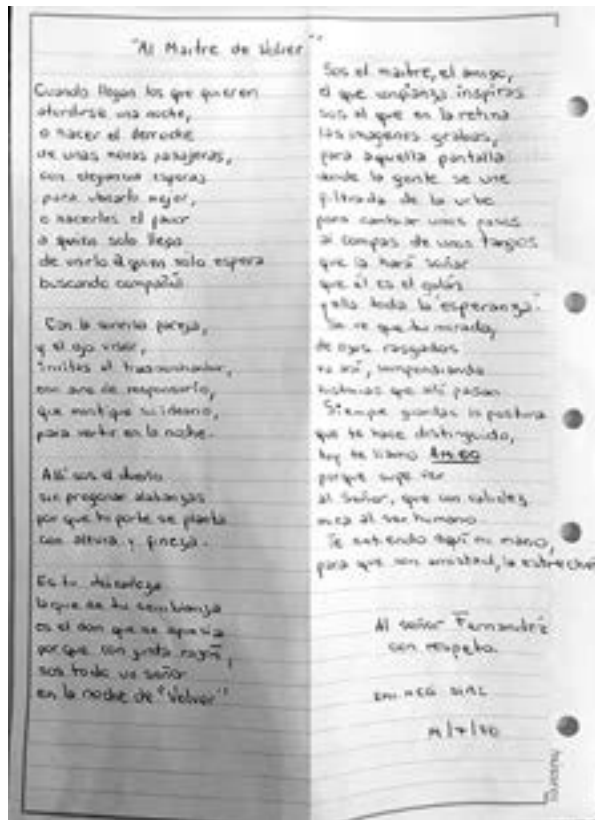 "Al Maitre de Volver"
Cuando llegan los que quieren
aturdirse una noche,
o hacer el derroche
de unas horas pasajeras,
con elegancia esperas
para ubicarlo mejor,
o hacerles el favor
a quien solo llega
de unirlo a quien solo espera
buscando compañía
Con la sonrisa pareja,
y el ojo visor,
invitas al trasnochador,
con aire de responsorio,
que mastique su ideario,
para vertir en la noche.
Allí sos el dueño
sin pregonar alabanzas
por que tu porte se planta
con altura y fineza.
Es tu
lo que de tu semblanza
es el don que se aprecia
por que con justa razón,
sos todo un señor
en la noche de "Volver"
Sos el maitre, el amigo,
el que confianza inspiras
sos el que en la retina
las imagenes grabas,
para aquella pantalla
donde la gente se une
filtrada de la urbe
para cambiar unos pasos
al compas de unos tangos
que la hará soñar
que él es el galán
y ella toda la "esperanza".
Se ve que tu mirada,
de ojos rasgados
va así, compensando
historias que allí pasan
Siempre guardas la postura
que te hace distinguido,
hoy te llamo AMIGO
porque supe ver
al Señor, que con validez
mira al ser humano
Te extiendo aquí mi mano,
para que con amistad, la estreches
Al señor Fernandez
con respeto.